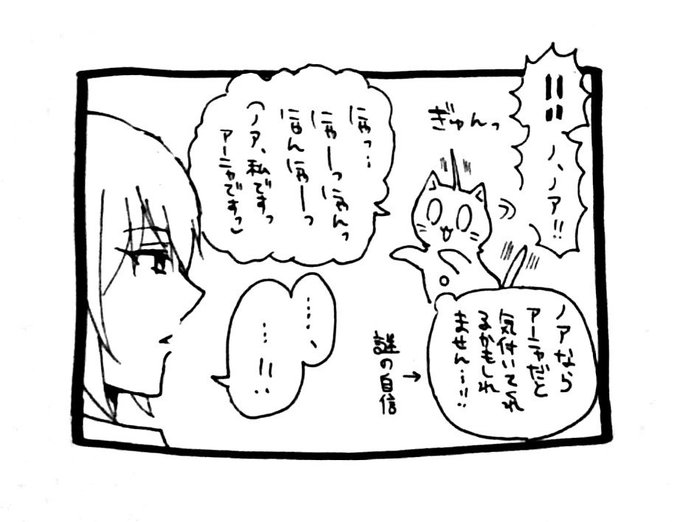 !!
ノ、ノア!!
ぎゅんっ
ノアなら
アーニャだと
気付いてくれ
るかもしれ
ません…!!
謎の自信
→
にゃっ…
にゃーっにゃんっ
なんにゃーっ
(ノア、私ですっ
アーニャですっ)
……、
…!!